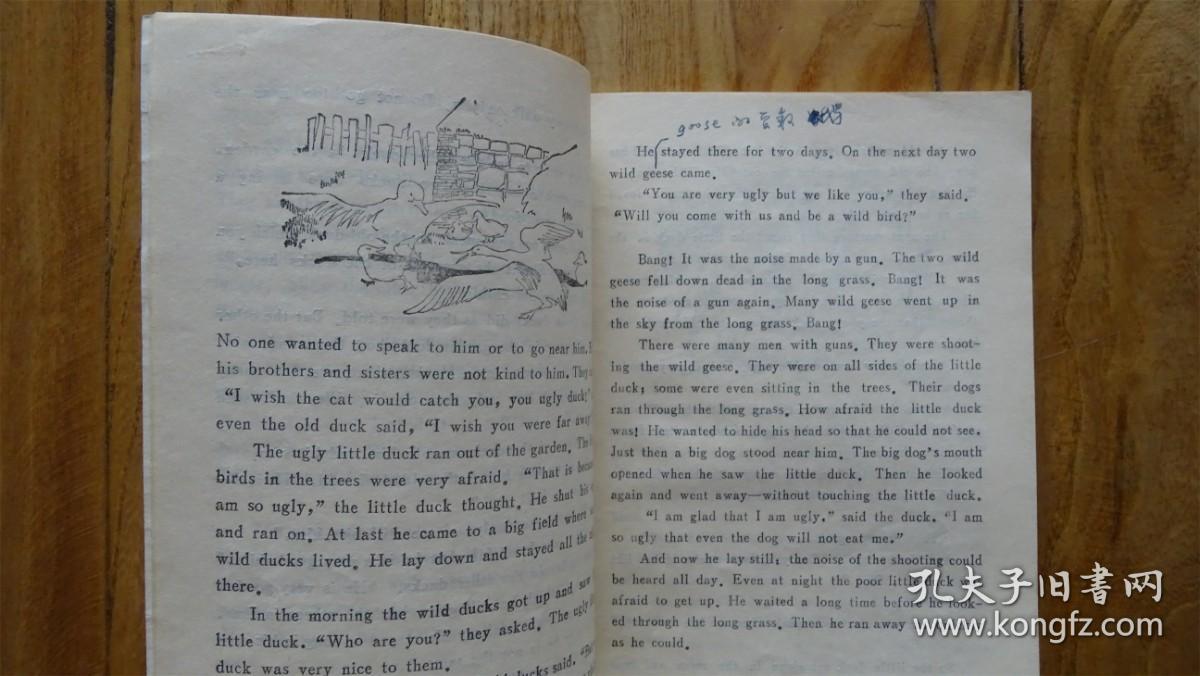 No one wanted to speak to him or to go near him.
his brothers and sisters were not kind to him. They
“I wish the cat would catch you, you ugly duck;”
even the old duck said, “I wish you were far away
The ugly little duck ran out of the garden. The
birds in the trees were very afraid. “That is
am so ugly,” the little duck thought. He shut his
and ran on. At last he came to a big field where
wild ducks lived. He lay down and stayed all the
there.
In the morning the wild ducks got up and saw
little duck. “Who are you?” they asked. The ugly
duck was very nice to them.
ducks said.
goose 的
He stayed there for two days. On the next day two
wild geese came.
“You are very ugly but we like you,” they said.
“Will you come with us and be a wild bird?”
Bang! It was the noise made by a gun. The two wild
geese fell down dead in the long grass. Bang! It was
the noise of a gun again. Many wild geese went up in
the sky from the long grass. Bang!
There were many men with guns. They were shoot-
ing the wild geese. They were on all sides of the little
duck; some were even sitting in the trees. Their dogs
ran through the long grass. How afraid the little duck
was! He wanted to hide his head so that he could not see.
Just then a big dog stood near him. The big dog's mouth
opened when he saw the little duck. Then he looked
again and went away—without touching the little duck.
“I am glad that I am ugly,” said the duck. “I am
so ugly that even the dog will not eat me.”
And now he lay still; the noise of the shooting could
be heard all day. Even at night the poor little duck
afraid to get up. He waited a long time before he look-
ed through the long grass. Then he ran away
as he could.
孔夫子旧書网
www.kongfz.com